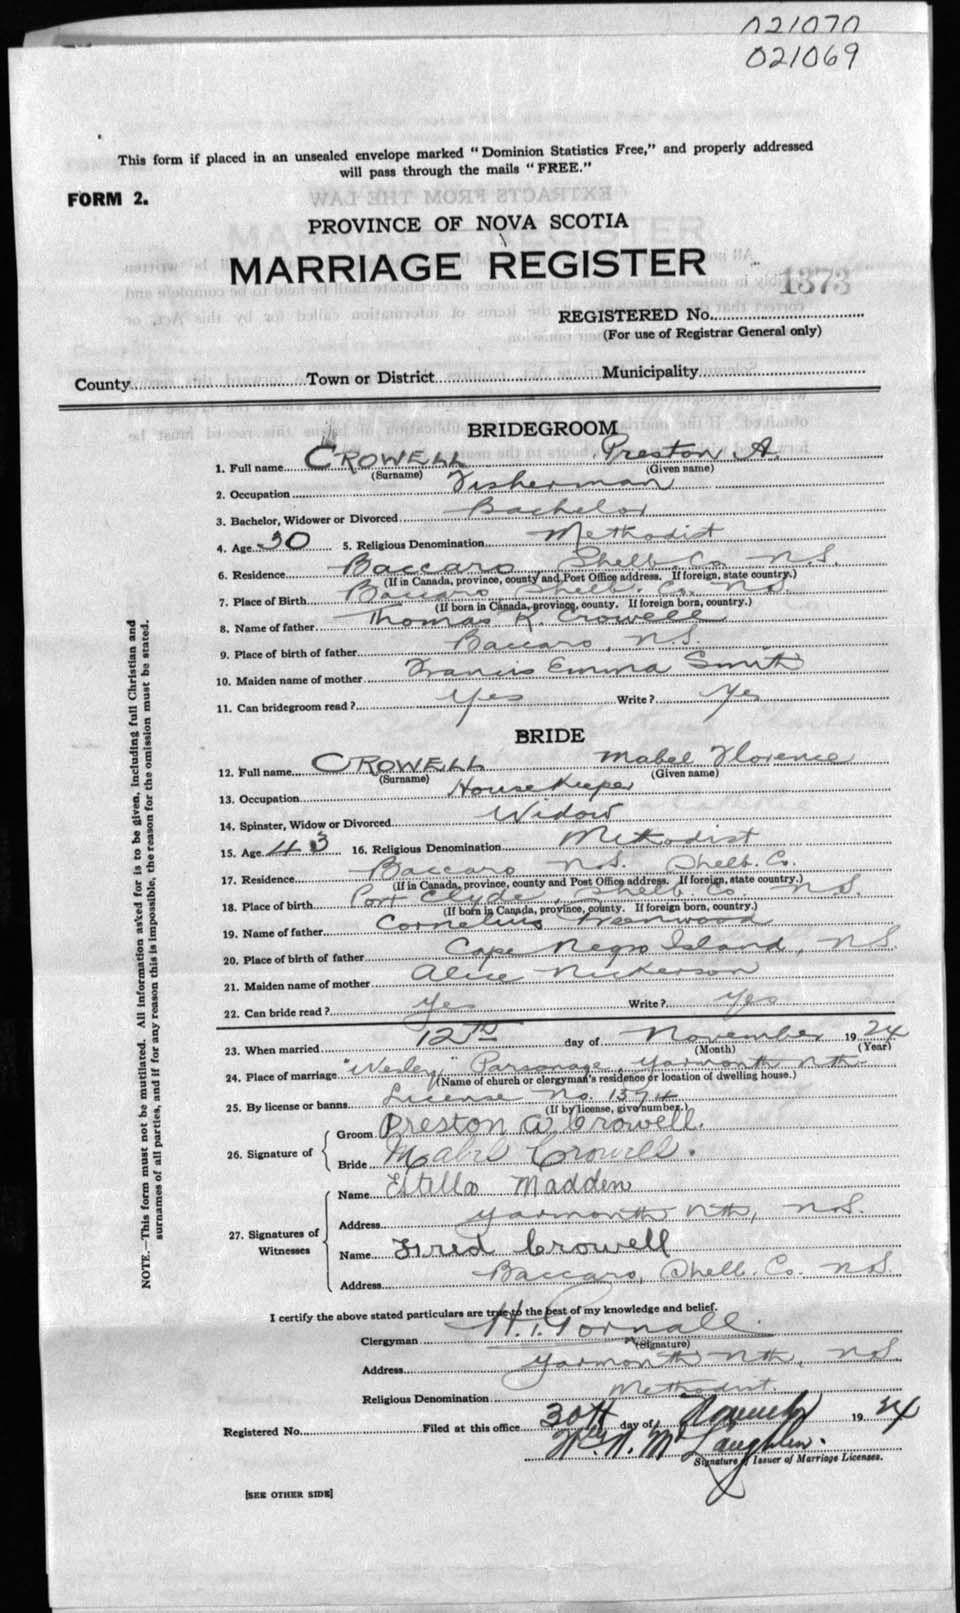 021070
021069
This form if placed in an unsealed envelope marked "Dominion Statistics Free," and properly addressed
will pass through the mails "FREE."
FORM 2.
PROVINCE OF NOVA SCOTIA
MARRIAGE REGISTER
1373
REGISTERED No.
(For use of Registrar General only)
County Town or District Municipality
BRIDEGROOM
1. Full name CROWELL Preston A.
(Surname) (Given name)
2. Occupation Fisherman
3. Bachelor, Widower or Divorced Bachelor
4. Age 30 5. Religious Denomination Methodist
6. Residence Baccaro, Shelb. Co. N.S.
(If in Canada, province, county and Post Office address. If foreign, state country.)
7. Place of Birth Baccaro Shelb. Co. N.S.
(If born in Canada, province, county. If foreign born, country.)
8. Name of father Thomas K. Crowell
9. Place of birth of father Baccaro, N.S.
10. Maiden name of mother Francis Emma Smith
11. Can bridegroom read? Yes Write? Yes
BRIDE
12. Full name CROWELL Mabel Florence
(Surname) (Given name)
13. Occupation House Keeper
14. Spinster, Widow or Divorced Widow
15. Age 43 16. Religious Denomination Methodist
17. Residence Baccaro N.S. Shelb. Co.
(If in Canada, province, county and Post Office address. If foreign, state country.)
18. Place of birth Port Clyde, Shelb. Co. N.S.
(If born in Canada, province, county. If foreign born, country.)
19. Name of father Cornelius Greenwood
20. Place of birth of father Cape Negro Island, N.S.
21. Maiden name of mother Alice Nickerson
22. Can bride read? Yes Write? Yes
23. When married 12TH day of November 1924
(Month) (Year)
24. Place of marriage "Wesley" Parsonage, Yarmouth Nth.
(Name of church or clergyman's residence or location of dwelling house.)
25. By license or banns License No. 1374
(If by license, give number.)
26. Signature of Groom Preston A Crowell.
Bride Mabel Crowell.
27. Signatures of Witnesses Name Estella Madden
Address Yarmouth Nth, N.S.
Name Fred Crowell
Address Baccaro, Shelb. Co. N.S.
I certify the above stated particulars are true to the best of my knowledge and belief.
Clergyman
(Signature)
Address Yarmouth Nth, N.S.
Religious Denomination Methodist.
Registered No. Filed at this office 30th day of November 1924
McLaughlin.
Signature of Issuer of Marriage Licenses.
[SEE OTHER SIDE]
NOTE.—This form must not be mutilated. All information asked for is to be given, including full Christian and
surnames of all parties, and if for any reason this is impossible, the reason for the omission must be stated.